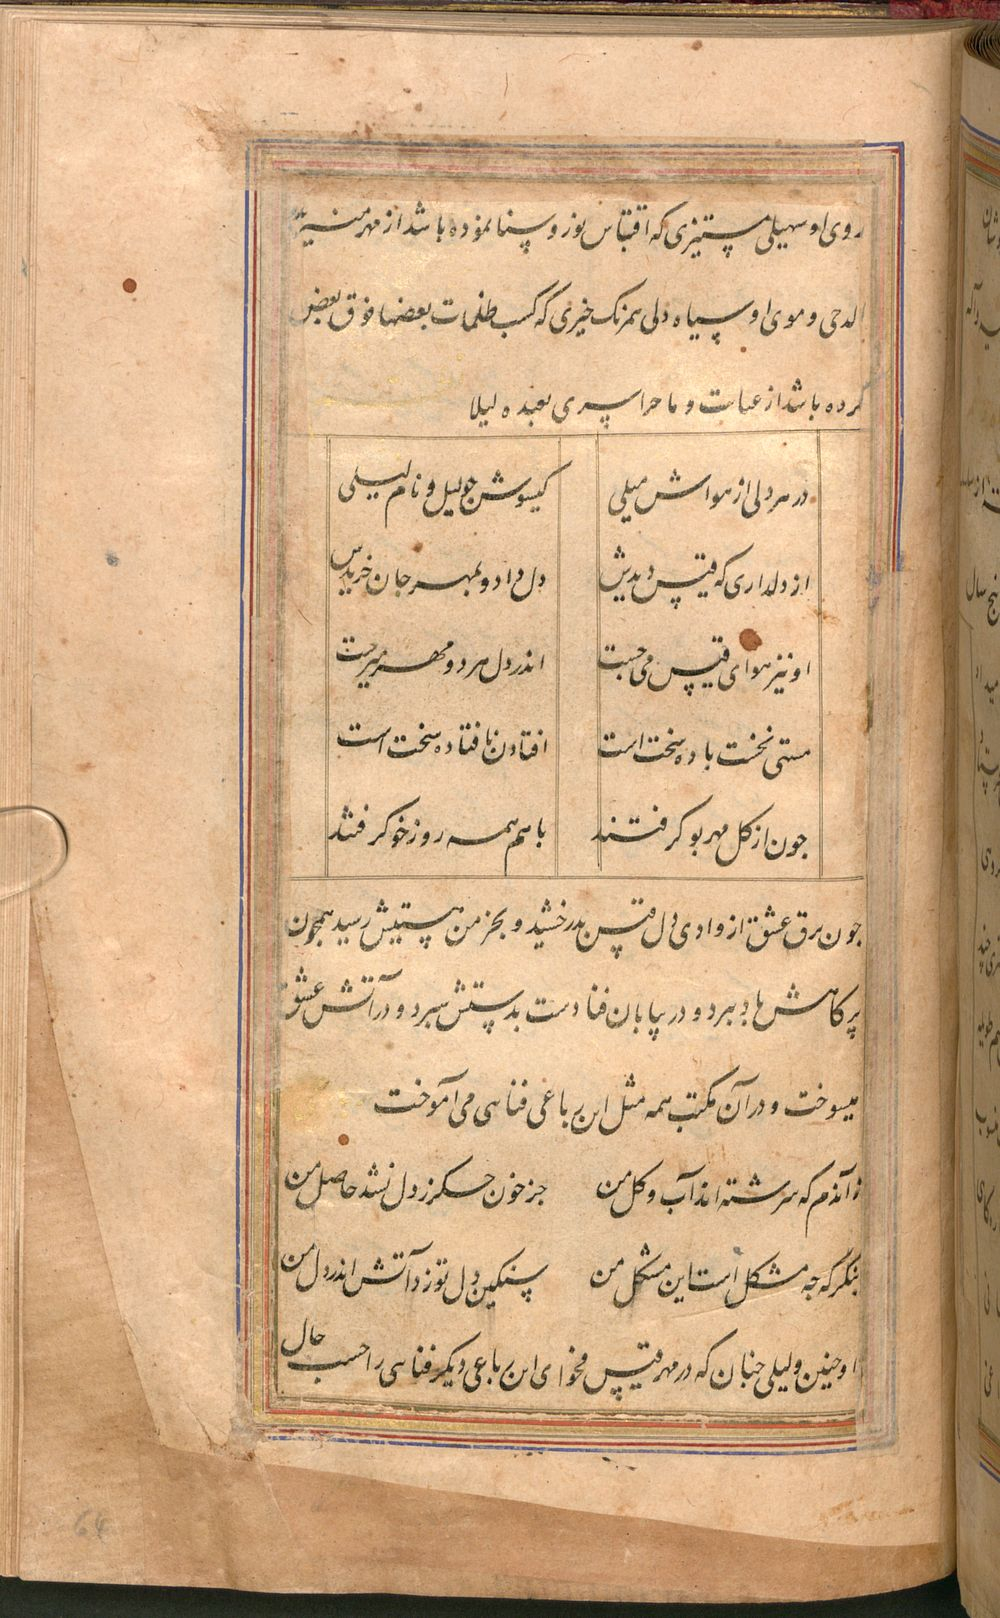 روی او سهیلی مستنیری که اقتباس نور و سنا نموده باشد از مهر منیر بدر
الدجی و موی او سیاه دلی همرنک خیری که کسب ظلمات بعضها فوق بعض
کرده باشد از اسری بعبده لیلا
در هر دلی از هواش میلی
کیسوش جو لیل و نام لیلی
از دلداری که قیس دیدش
دل داد و بمهر جان خریدش
او نیز هوای قیس می جست
اندر دل هر دو مهر می رست
مستی نخست باده سخت است
افتادن نافتاده سخت است
جون از کل مهر بو کرفتند
با هم همه روز خو کرفتند
جون برق عشق از وادی دل قیس بدرخشید و بخرمن هستیش رسید همجون
پر کاهش باد ببرد و در بیابان فنا دست بدستش سپرد و در آتش عشق
میسوخت و در آن مکتب همه مثل این رباعی فناهی می آموخت
زآندم که سرشته اند آب و کل من
جز خون جکر ز دل نشد حاصل من
بنکر که جه مشکل است این مشکل من
سنکین دل تو زد آتش اندر دل من
او جنین و لیلی جنان که در مهر قیس فحوای این رباعی دیکر فناهی را حسب حال
64